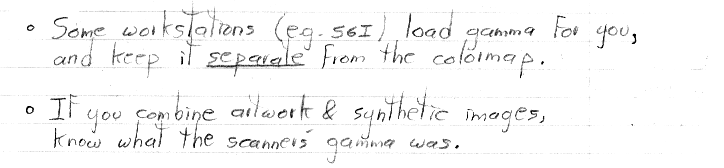 ◦ Some workstations (eg. SGI) load gamma for you,
and keep it separate from the colormap.
◦ If you combine artwork & synthetic images,
know what the scanners' gamma was.